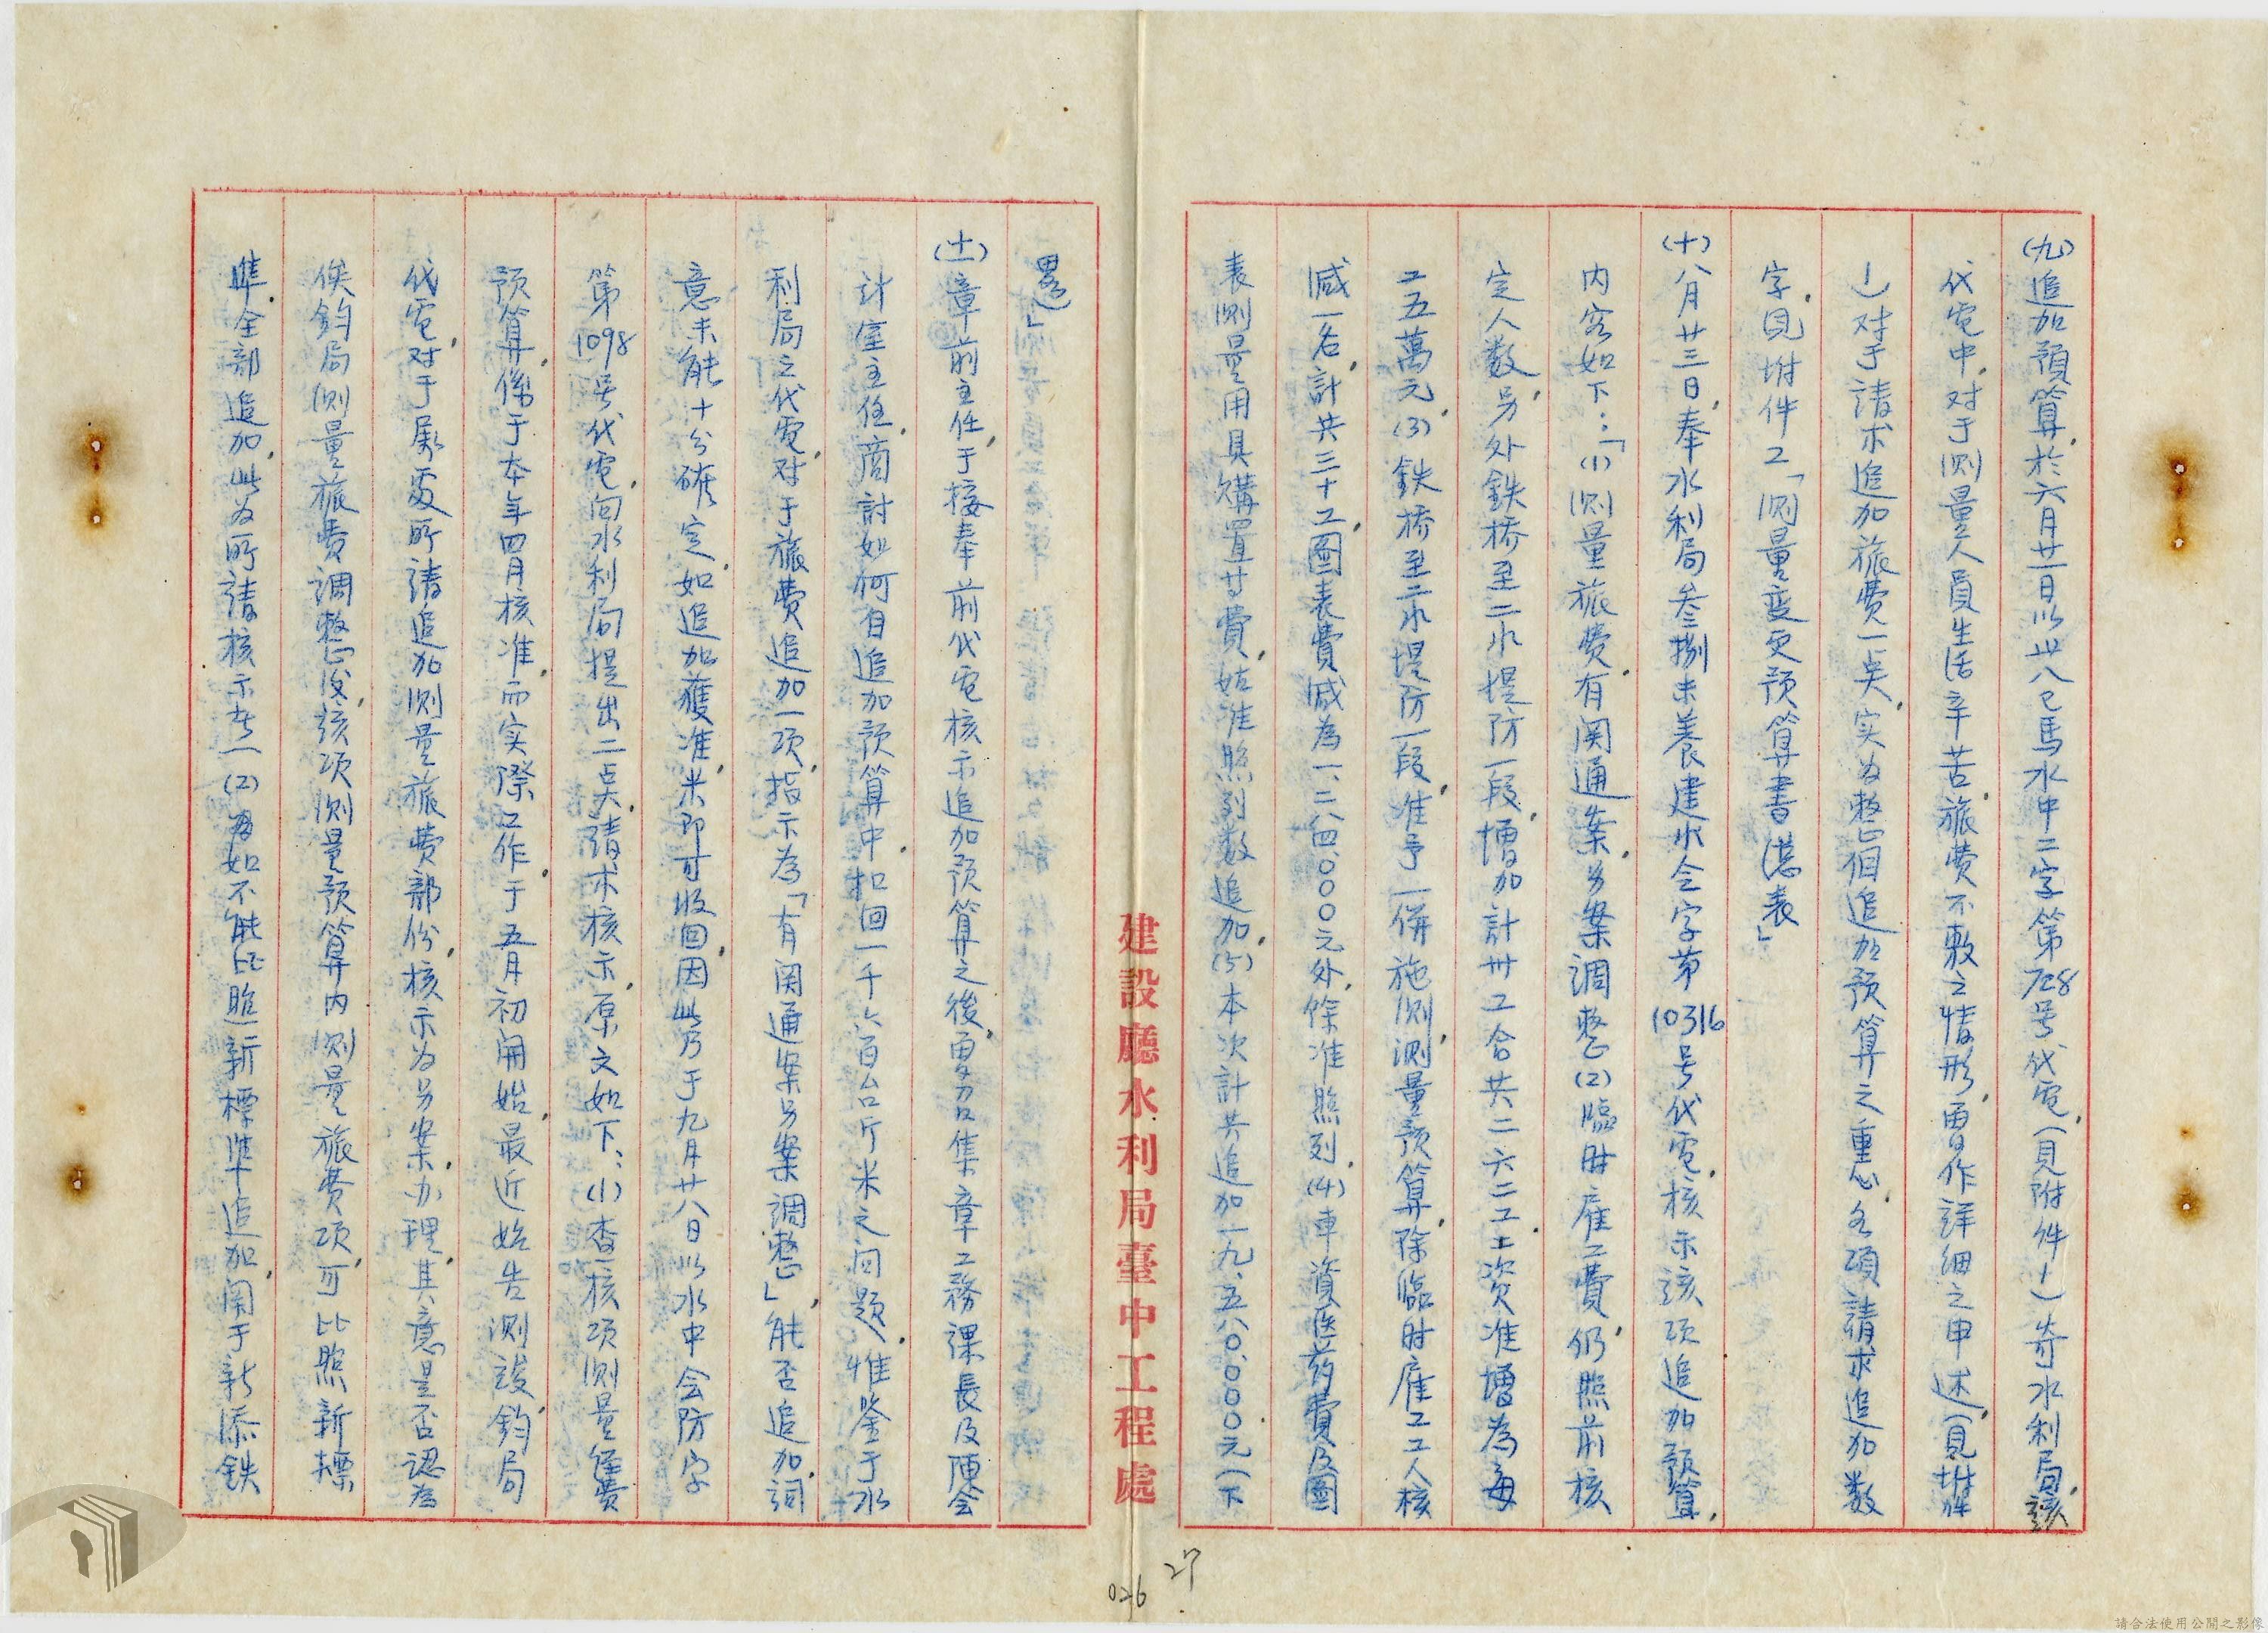 (九)追加預算,於六月廿一日以卅八巳馬水中工字第728号代電,(見附件1)寄水利局,該
代電中,对于測量人員生活辛苦,旅費不敷之情形,曾作詳細之申述,(見坿件
1)对于請求追加旅費一点,实为整個追加預算之重心,各項請求追加数
字,見坿件2「測量变更预算書總表」
(十)八月廿三日,奉水利局叁捌未養建水仝字第10316号代電,核示該项追加预算,
内容如下:「(1)測量旅費,有関通案,另案調整(2)臨时雇工費,仍照前核
定人数,另外鉄桥至二水堤防一段,增加計卅工合共二六二工,工资准增為每
工五萬元,(3)鉄桥至二水堤防一段,准予一併施測,測量预算,除臨时雇工工人核
減一名,計共三十工,圖表費減為一、二八四、000元外,餘准照列,(4)車資医药費及圖
表測量用具購置廿費,姑准照列数追加,(5)本次計共追加一九、五八0、000元(下
建設廳水利局臺中工程處
畧)」
(十一)章前主任,于接奉前代電核示追加预算之後,曾召集章工務課長及陳会
計室主任,商討如何自追加预算中,扣回一千六百台斤米之问題,惟鉴于水
利局之代電,对于旅費追加一项,指示為「有関通案另案調整」,能否追加,詞
意未能十分確定,如追加獲准,米即可收回,因此乃于九月廿八日以水中会防字
第1098号代電,向水利局提出二点,請求核示,原文如下:(1)查核项測量經費
预算,係于本年四月核准,而实際工作,于五月初開始,最近始告測竣,鈞局
代電,对于屬处所請追加測量旅費部份,核示为另案办理,其意是否認為
俟鈞局測量旅費調整後,該项測量预算内測量旅費项,可比照新標
準,全部追加,此为所請核示者一(2)如不能比照新標準追加,関于新添鉄
026
27
請合法使用公開之影像